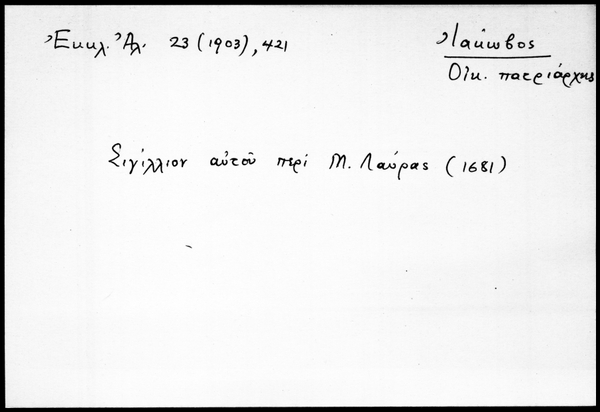 Ἐκκλ. Ἀλ. 23 (1903), 421
Ἰάκωβος
Οἰκ. πατριάρχης
Σιγίλλιον αὐτοῦ περί Μ. Λαύρας (1681)